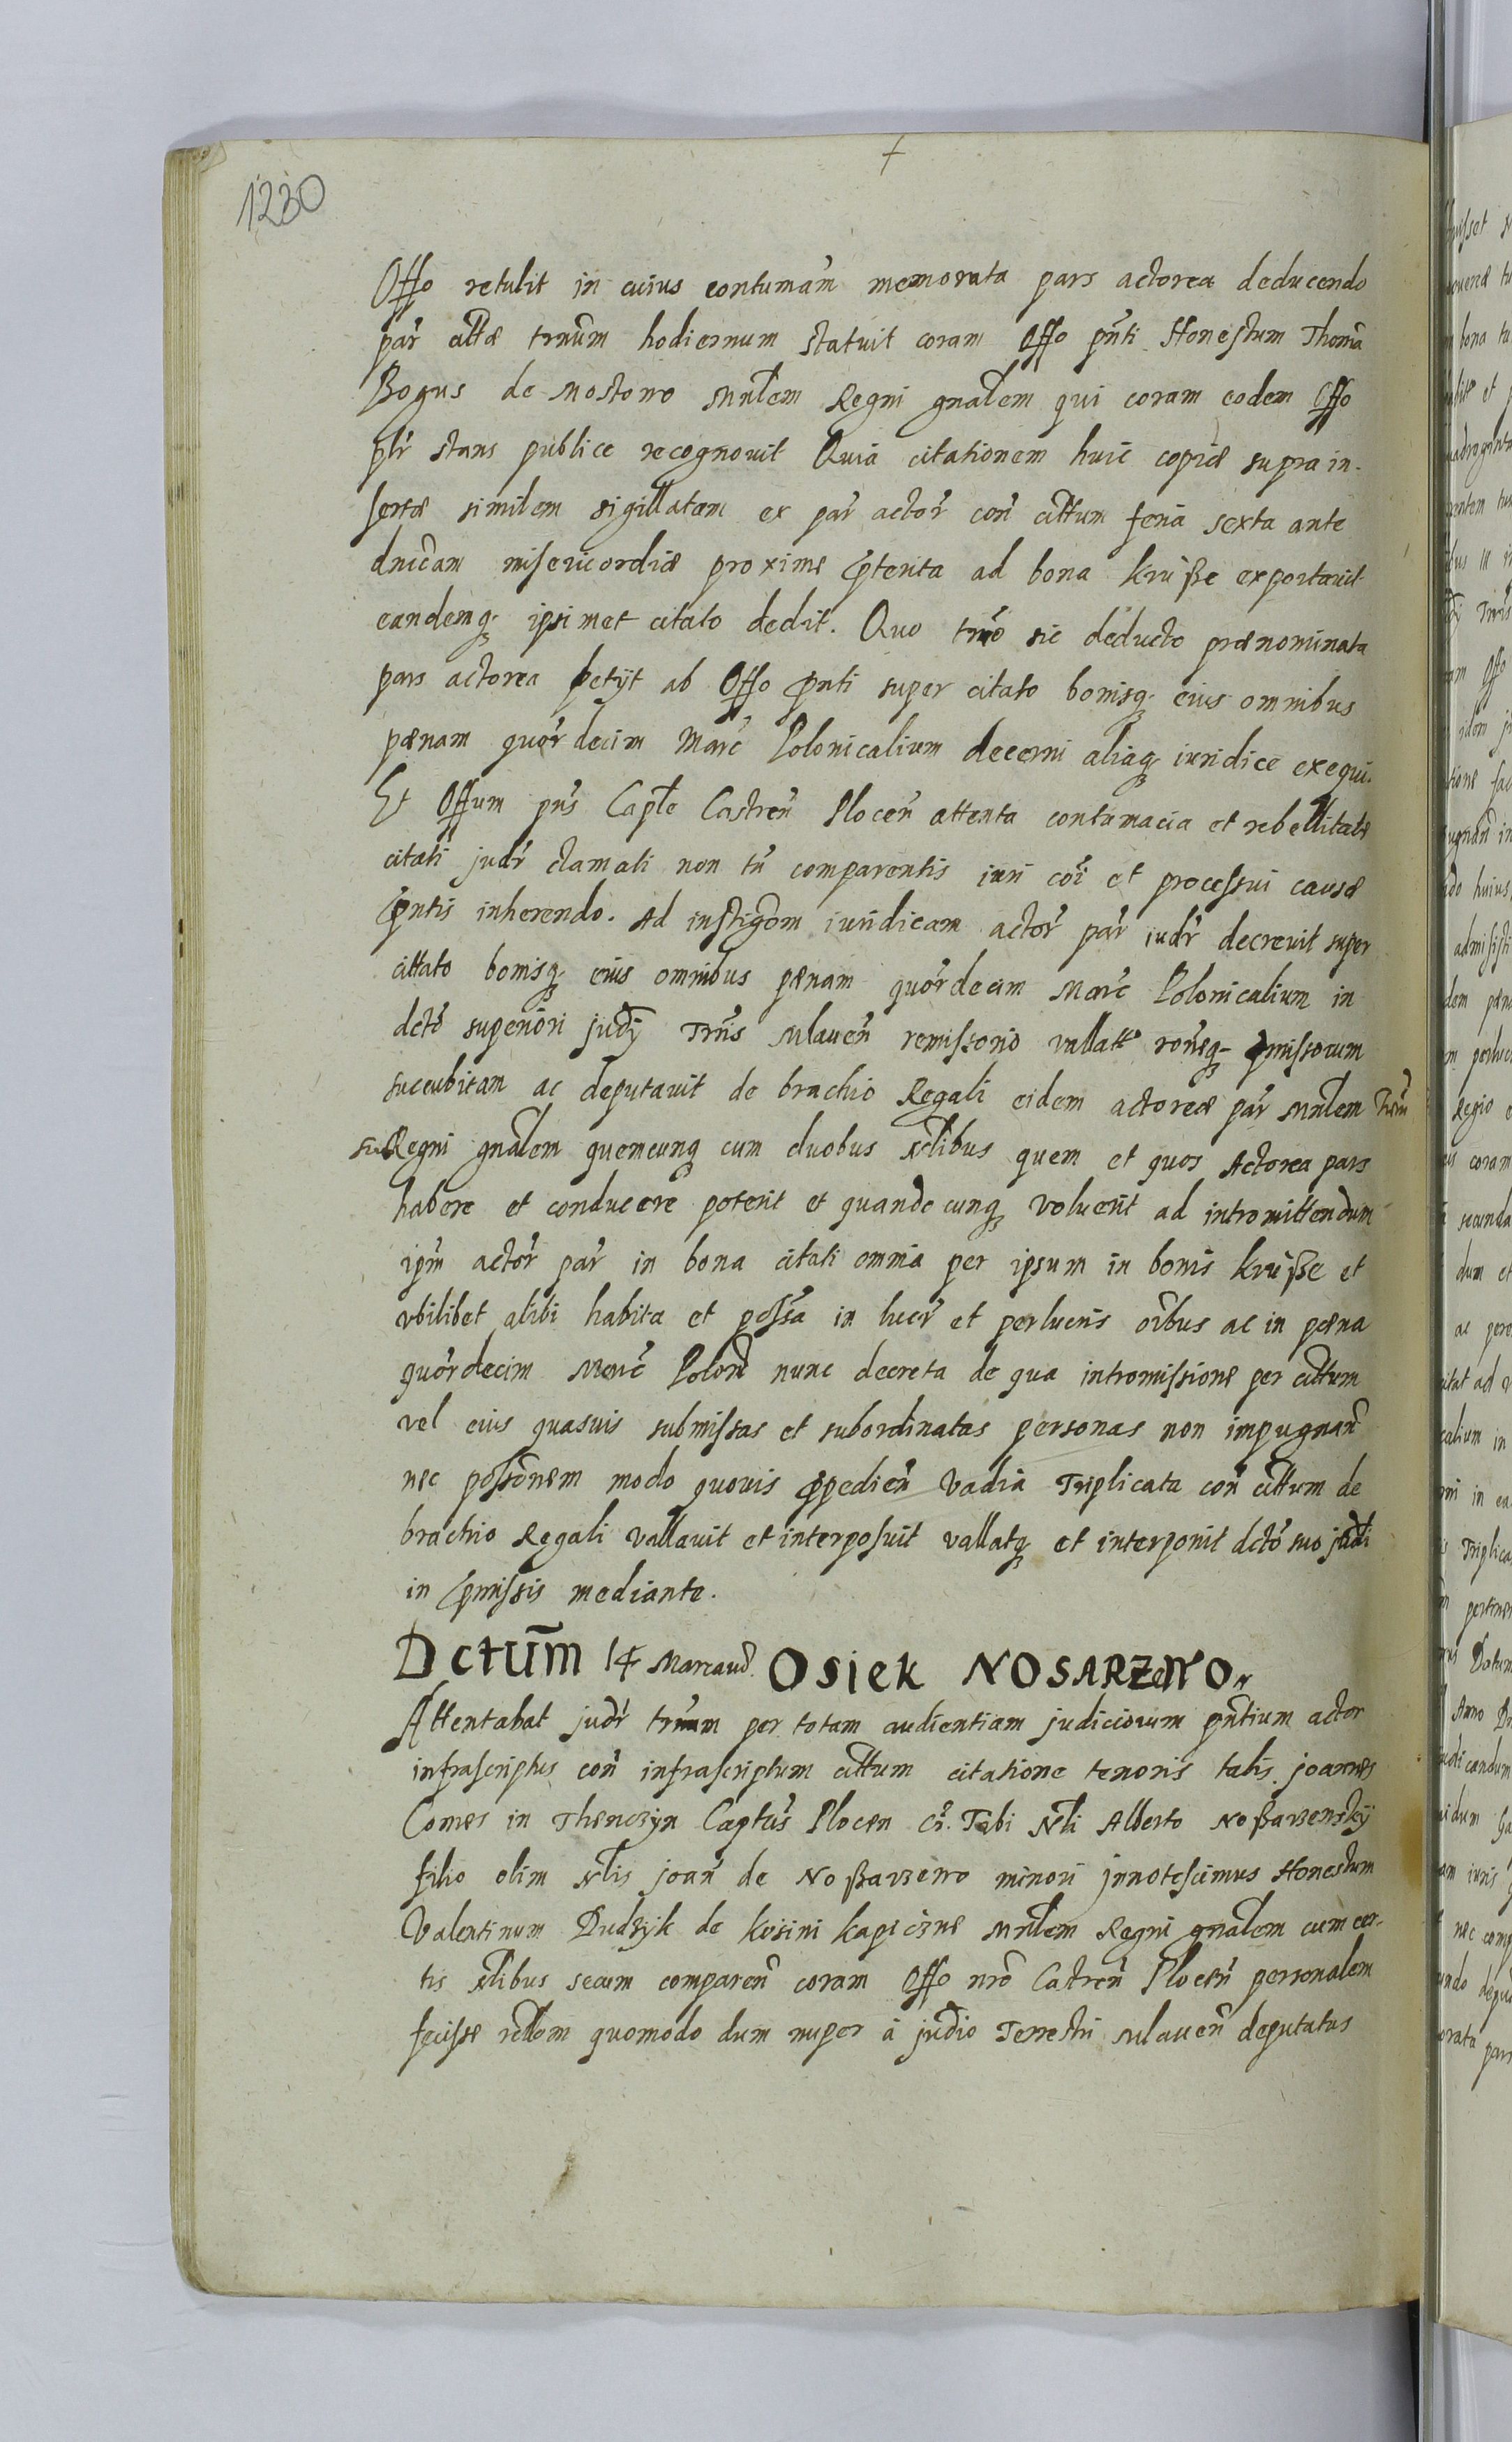 1230
Offo retulit in cuius contumam̃ memorata pars actorea deducendo
par̃ attæ trnũm hodiernum statuit coram Offo pñti Honestum Thomã
Bogus de Mostowo Mnlem Regni gnalem qui coram eodem Offo
plr̃ stans publice recognovit Quia citationem huic copiæ supra in-
sertæ similem sigillatam ex par̃ actor̃ con̄ cittum feria sexta ante
dnicam misericordiæ proxime ꝑterita ad bona Krusße exportavit
eandemq ipsimet citato dedit. Quo trnõ sic deducto prænominata
pars actorea petijt ab Offo ꝑnti super citato bonisq eius omnibus
pænam quõrdecim Marc̃ Polonicalium decerni aliaq iuridice exequi.
Et Offum pñs Caplẽ Castreñ Ploceñ attenta contumacia et rebellitate
citati judr̃ clamati non tñ comparentis iuri cõi et processui causæ
ꝑntis inherendo. Ad instigõm iuridicam actor̃ par̃ iudr̃ decrevit super
cittato bonisq eius omnibus pænam quõrdecim Marc̃ Polonicalium in
dctõ superiori judij Trris Mlaueñ remissorio vallatt rõnsq ꝑmissorum
succubitam ac deputavit de brachio Regali eidem actoreæ par̃ Mnlem
Regni gnalem quemcunq cum duobus Nlibus quem et quos Actorea pars
habere et conducere poterit et quandocunq voluerit ad intromittendum
ipm̃ actor̃ par̃ in bona citati omnia per ipsum in bonis Krusße et
vbilibet alibi habita et possa in lucr̃ et perlucris oĩbus ac in pæna
quõrdecim Marc̃ Poloñ nunc decreta de qua intromissione per cittum
vel eius quasvis submissas et subordinatas personas non impugnañ
nec possõnem modo quovis ꝑpedieñ Vadia Triplicata coñ cittum de
brachio Regali vallavit et interposuit vallatq et interponit dctõ suo judi
in ꝑmissis mediante.
Dctum̃ 14 Marcarũ. Osiek NOSARZewo.
Attentabat judr̃ trnum per totam audientiam judiciorum pñtium actor
infrascriptus coñ infrascriptum cittum citatione tenoris talis. Joannes
Comes in Thenczyn Captus̃ Plocen C̃r. Tibi Nli Alberto Noßarzewsky
filio olim Nlis Joañ de Noßarzewo minori jnnotescimus Honestum
Valentinum Dudzyk de Kosini Kapiczne Mnlem Regni gnalem cum cer-
tis Nlibus secum compareñ coram Offo nrõ Castreñ Ploceñ personalem
fecisse rẽllem quomodo dum nuper à judio Terrestri Mlaueñ deputatus